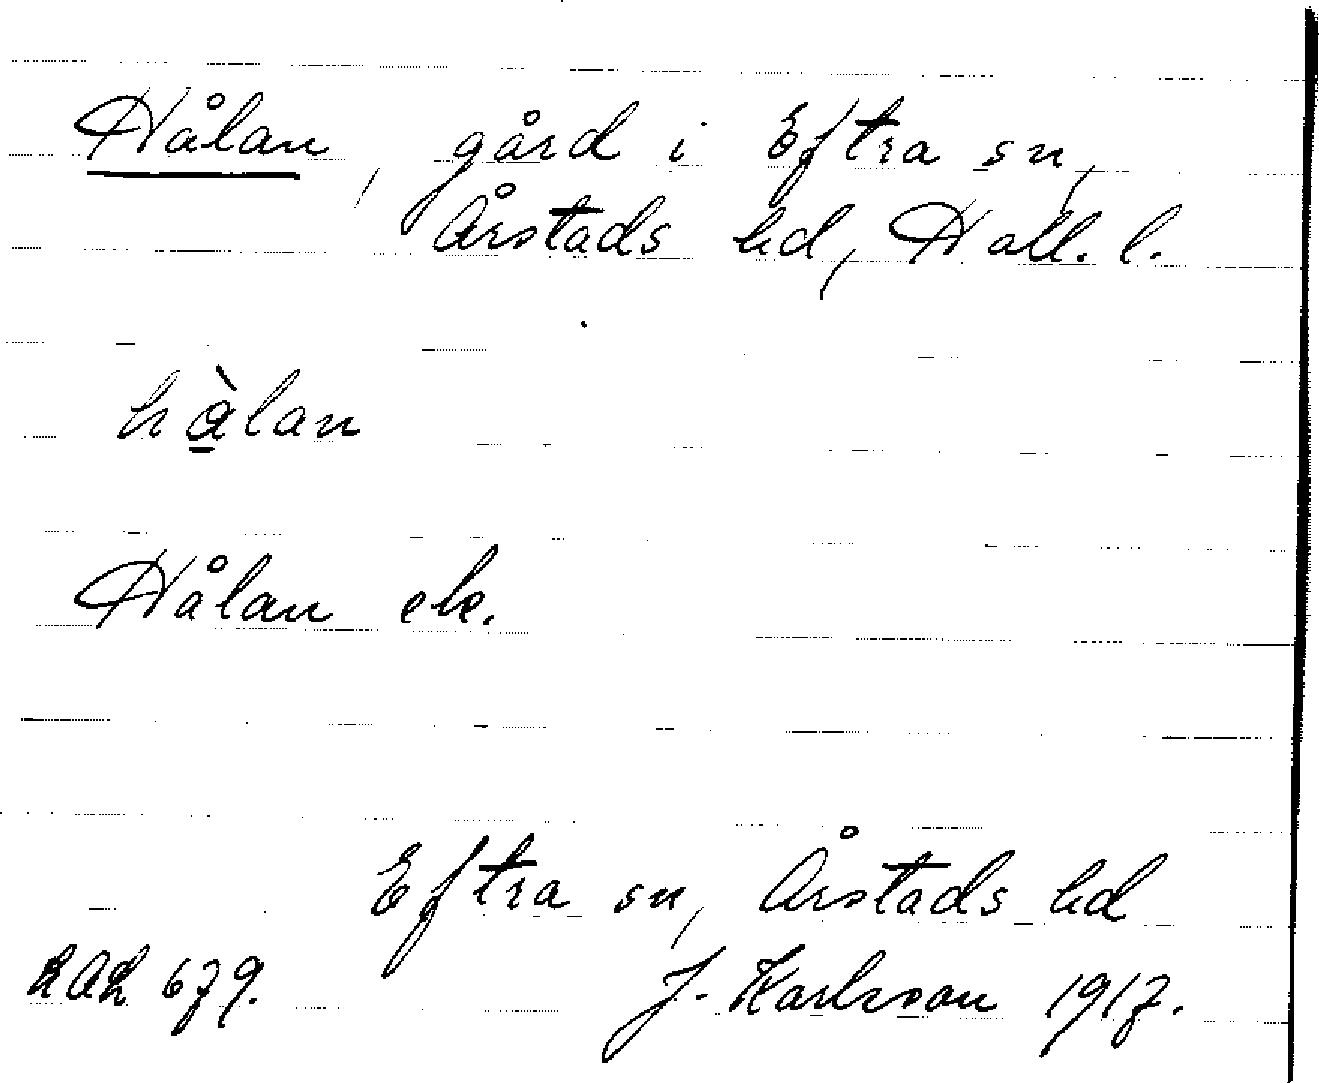 Hålan, gård i Eftra sn,
Årstads hd, Hall. l.
hàlan
Hålan ele.
Eftra sn, Årstads hd
J. Karlsson 1917.
679.